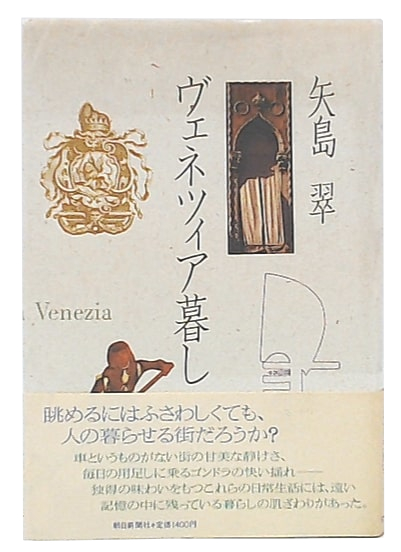 矢島 翠
ヴェネツィア暮し
Venezia
眺めるにはふさわしくても、
人の暮らせる街だろうか?
車というものがない街の甘美な静けさ、
毎日の用足しに乗るゴンドラの快い揺れ——
独得の味わいをもつこれらの日常生活には、遠い
記憶の中に残っている暮らしの肌ざわりがあった。
朝日新聞社・定価1400円